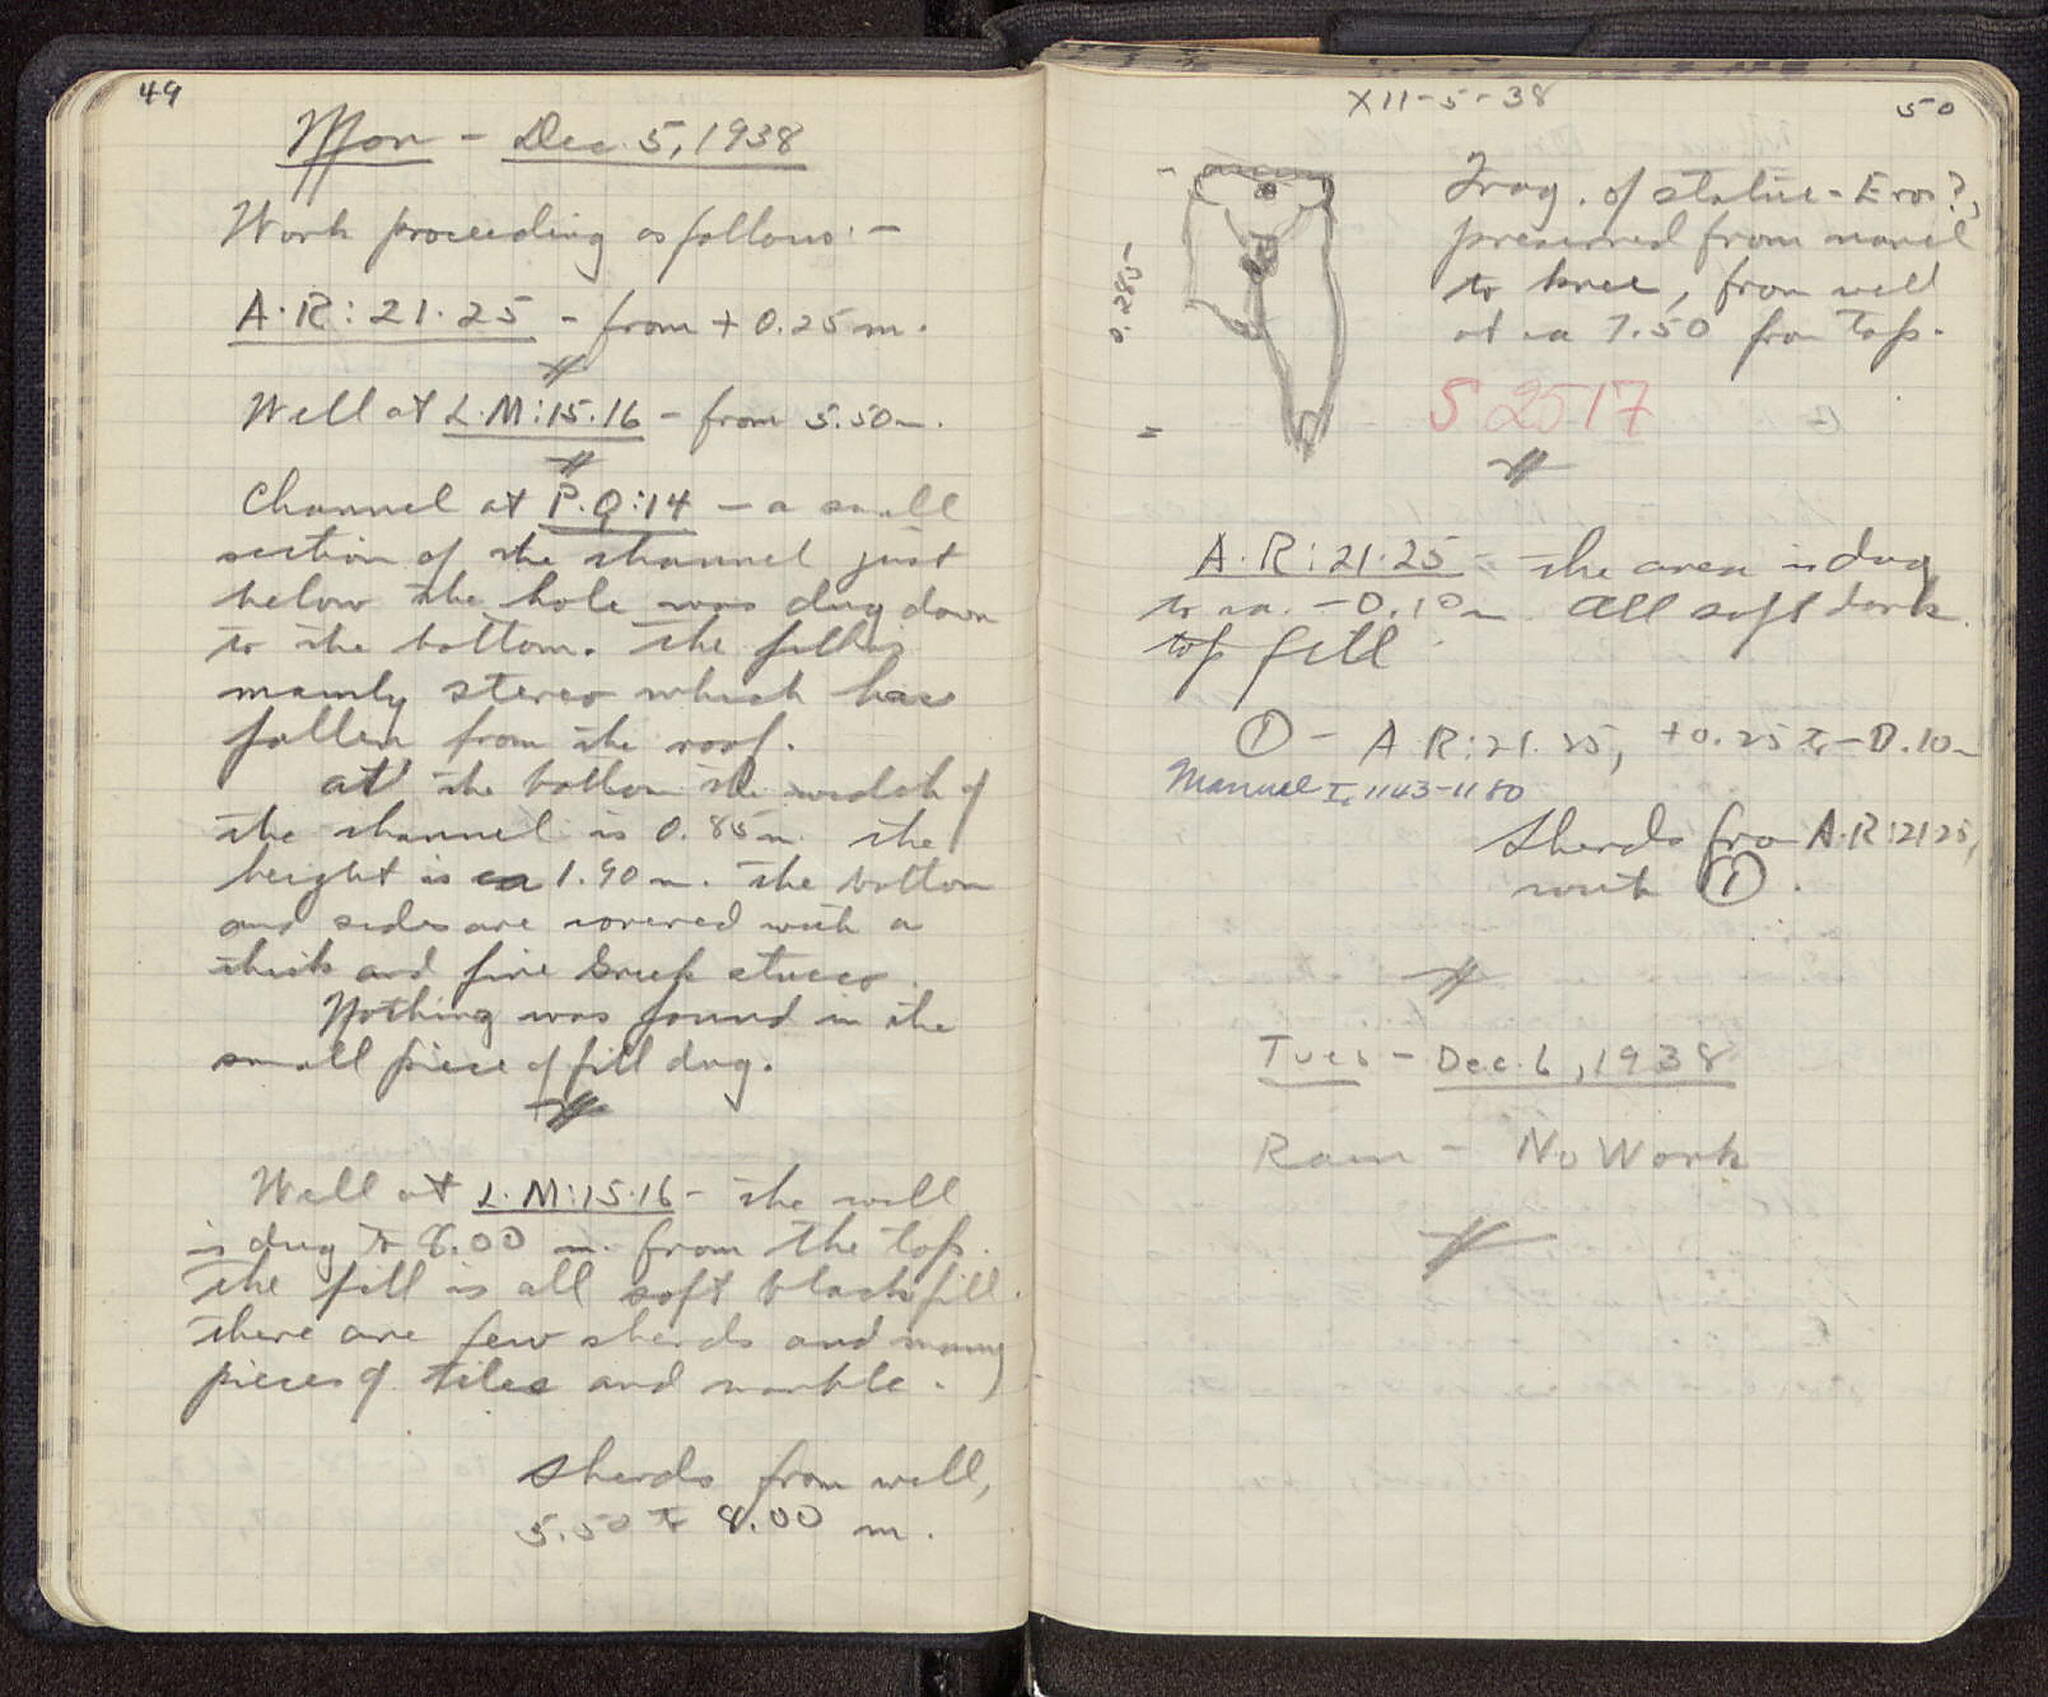 49
Mon - Dec. 5, 1938
Work proceeding as follows: -
A.R:21.25 - from + 0.25 m.
Well at L.M:15.16 - from 5.50 m.
Channel at P.Q:14 - a small
section of the channel just
below the hole was dug down
to the bottom. The fill is
mainly stereo which has
fallen from the roof.
At the bottom the width of
the channel is 0.85 m. The
height is ca 1.90 m. The bottom
and sides are covered with a
thick and fine Greek stucco.
Nothing was found in the
small piece of fill dug.
Well at L.M:15.16 - The well
is dug to 8.00 m. from the top.
The fill is all soft black fill.
There are few sherds and many
pieces of tiles and marble.
Sherds from well,
5.50 to 8.00 m.
XII-5-38
50
0.285
Frag. of statue - Eros?,
preserved from navel
to knee, from well
at ca 7.50 from top.
S 2517
A.R:21.25 - The area is dug
to ca. -0.10 m. All soft dark
top fill.
① - A.R:21.25, +0.25 to -0.10 m
Manuel I, 1143-1180
Sherds from A.R:21.25,
with ①.
Tues - Dec. 6, 1938
Rain - No Work